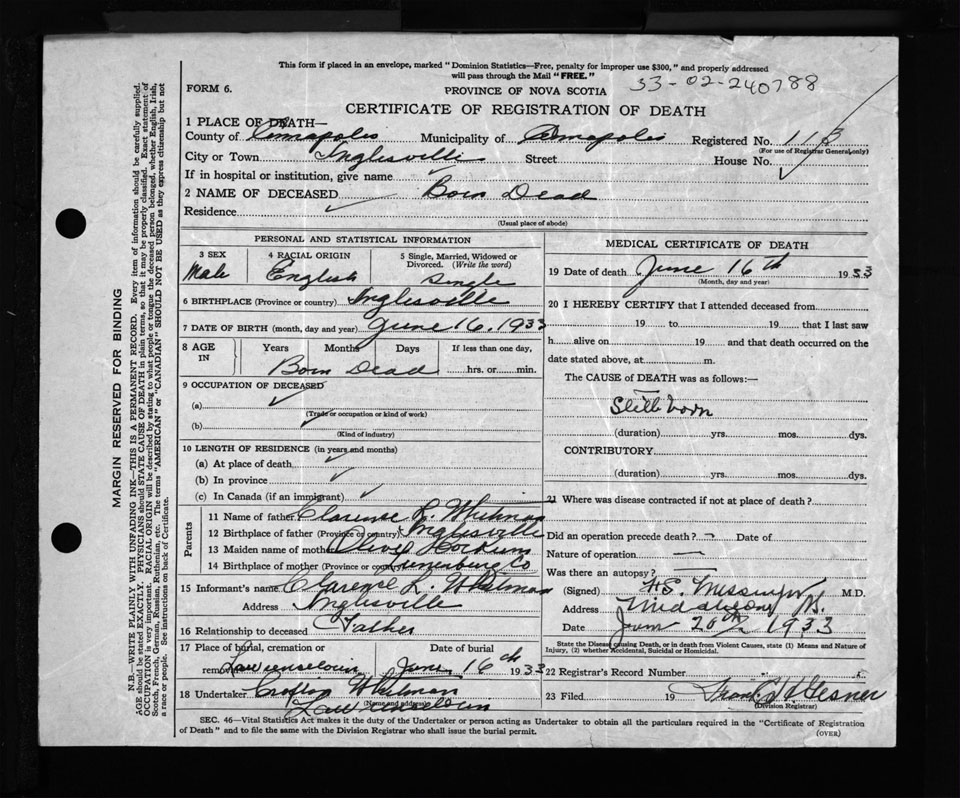 This form if placed in an envelope, marked "Dominion Statistics—Free, penalty for improper use $300," and properly addressed
will pass through the Mail "FREE."
33-02-240788
FORM 6.
PROVINCE OF NOVA SCOTIA
CERTIFICATE OF REGISTRATION OF DEATH
1 PLACE OF DEATH—
County of Annapolis Municipality of Annapolis Registered No. 113
(For use of Registrar General only)
City or Town Inglisville Street House No.
If in hospital or institution, give name
2 NAME OF DECEASED Born Dead
Residence
(Usual place of abode)
PERSONAL AND STATISTICAL INFORMATION
3 SEX 4 RACIAL ORIGIN 5 Single, Married, Widowed or Divorced. (Write the word)
Male English Single
6 BIRTHPLACE (Province or country) Inglisville
7 DATE OF BIRTH (month, day and year) June 16, 1933
8 AGE IN Years Months Days If less than one day,
Born Dead hrs. or min.
9 OCCUPATION OF DECEASED
(a)
(Trade or occupation or kind of work)
(b)
(Kind of industry)
10 LENGTH OF RESIDENCE (in years and months)
(a) At place of death
(b) In province
(c) In Canada (if an immigrant)
Parents
11 Name of father Clarence L. Whitman
12 Birthplace of father (Province or country) Inglisville
13 Maiden name of mother
14 Birthplace of mother (Province or country) Lunenburg Co
15 Informant's name Clarence L. Whitman
Address Inglisville
16 Relationship to deceased Father
17 Place of burial, cremation or removal Date of burial
Lawrencetown June 16th 1933
18 Undertaker Whitman
(Name and address)
Lawrencetown
MEDICAL CERTIFICATE OF DEATH
19 Date of death June 16th 1933
(Month, day and year)
20 I HEREBY CERTIFY that I attended deceased from
19 to 19 that I last saw
h alive on 19 and that death occurred on the
date stated above, at m.
The CAUSE of DEATH was as follows:—
Still born
(duration) yrs. mos. dys.
CONTRIBUTORY
(duration) yrs. mos. dys.
21 Where was disease contracted if not at place of death?
Did an operation precede death? Date of
Nature of operation
Was there an autopsy?
(Signed) M.D.
Address
Date June 20th 1933
State the Disease causing Death, or in death from Violent Causes, state (1) Means and Nature of
Injury, (2) whether Accidental, Suicidal or Homicidal.
22 Registrar's Record Number
23 Filed 19 Gesner
(Division Registrar)
SEC. 46—Vital Statistics Act makes it the duty of the Undertaker or person acting as Undertaker to obtain all the particulars required in the "Certificate of Registration
of Death" and to file the same with the Division Registrar who shall issue the burial permit.
(OVER)
MARGIN RESERVED FOR BINDING
N.B.—WRITE PLAINLY WITH UNFADING INK—THIS IS A PERMANENT RECORD. Every item of information should be carefully supplied.
AGE should be stated EXACTLY. PHYSICIANS should STATE CAUSE OF DEATH in plain terms, so that it may be properly classified. Exact statement of
OCCUPATION is very important. RACIAL ORIGIN will be described by stating to what people or tongue the deceased person belonged, whether English, Irish,
Scotch, French, German, Russian, Ruthenian, etc. The terms "AMERICAN" or "CANADIAN" SHOULD NOT BE USED as they express citizenship but not
a race or people. See instructions on back of Certificate.